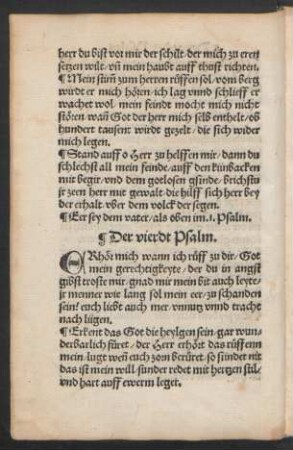 herr du bist vor mir der schilt der mich zu eren
setzen wilt/ vñ mein haubt auff thust richten.
¶ Mein stim̃ zum herren rüffen sol/ vom berg
wirdt er mich hören/ ich lag vnnd schlieff er
wachet wol/ mein feindt mocht mich nicht
stören/ wañ Got der herr mich selb enthelt/ ob
hundert tausent würdt gezelt/ die sich wider
mich legen.
¶ Stand auff o Herr zu helffen mir/ dann du
schlechst all mein feinde/ auff den kinbacken
mit begir/ vnd dem gotlosen gsinde/ brichstu
jr zeen herr mit gewalt/ die hilff sich herr bey
der erhalt/ vber dem volck der segen.
¶ Eer sey dem vater/ als oben im .1. Psalm.
¶ Der vierdt Psalm.
ERhör mich wann ich rüff zu dir/ Got
mein gerechtigkeyte/ der du in angst
gibst troste mir/ gnad mir mein bit auch leyte/
jr menner wie lang sol mein eer/ zu schanden
sein/ euch liebt auch mer/ vnnutz vnnd tracht
nach liegen.
¶ Erkent das Got die heylgen sein/ gar wun-
derbarlich füret/ der Herr erhört das rüffenn
mein/ lugt weñ euch zorn berüret/ so sündet nit
das ist mein will/ sunder redet mit hertzen stil/
vnd hart auff ewerm leger.